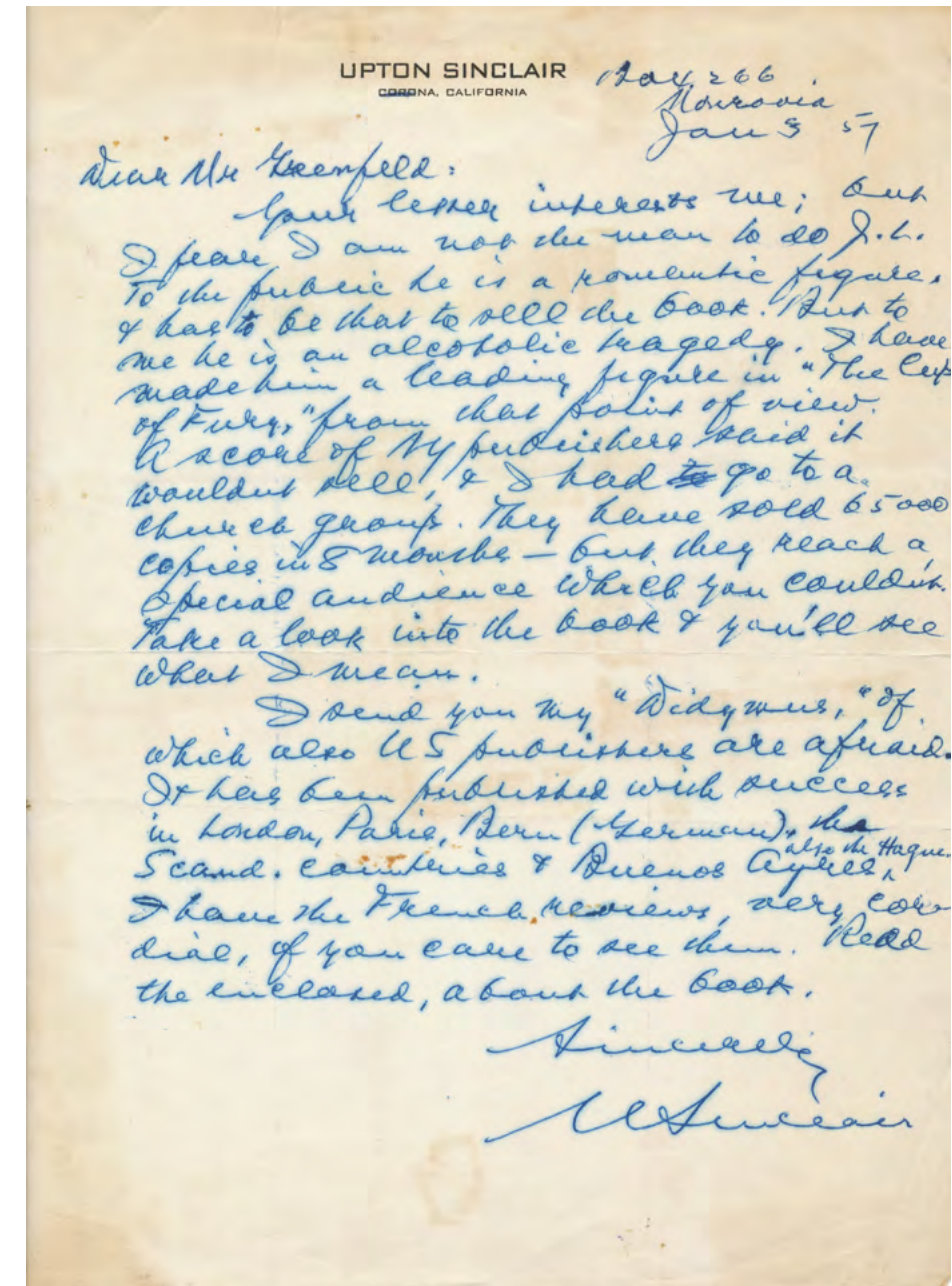 UPTON SINCLAIR
CORONA, CALIFORNIA
Box 266
Monrovia
Jan 3 57
Dear Mr Greenfeld:
Your letter interests me; but
I fear I am not the man to do J.L.
To the public he is a romantic figure.
& has to be that to sell the book. But to
me he is an alcoholic tragedy. I have
made him a leading figure in "The Cup
of Fury," from that point of view.
A score of NY publishers said it
wouldnt sell, & I had to go to a
church group. They have sold 65000
copies in 8 months — but they reach a
special audience which you couldn't
Take a look into the book & you'll see
what I mean.
I send you my "Didymus," of
which also US publishers are afraid.
It has been published with success
in London, Paris, Bern (German), the
Scand. countries & Buenos Ayres,
also the Hague.
I have the French reviews, very cor-
dial, if you care to see them. Read
the enclosed, about the book.
Sincerely
U Sinclair